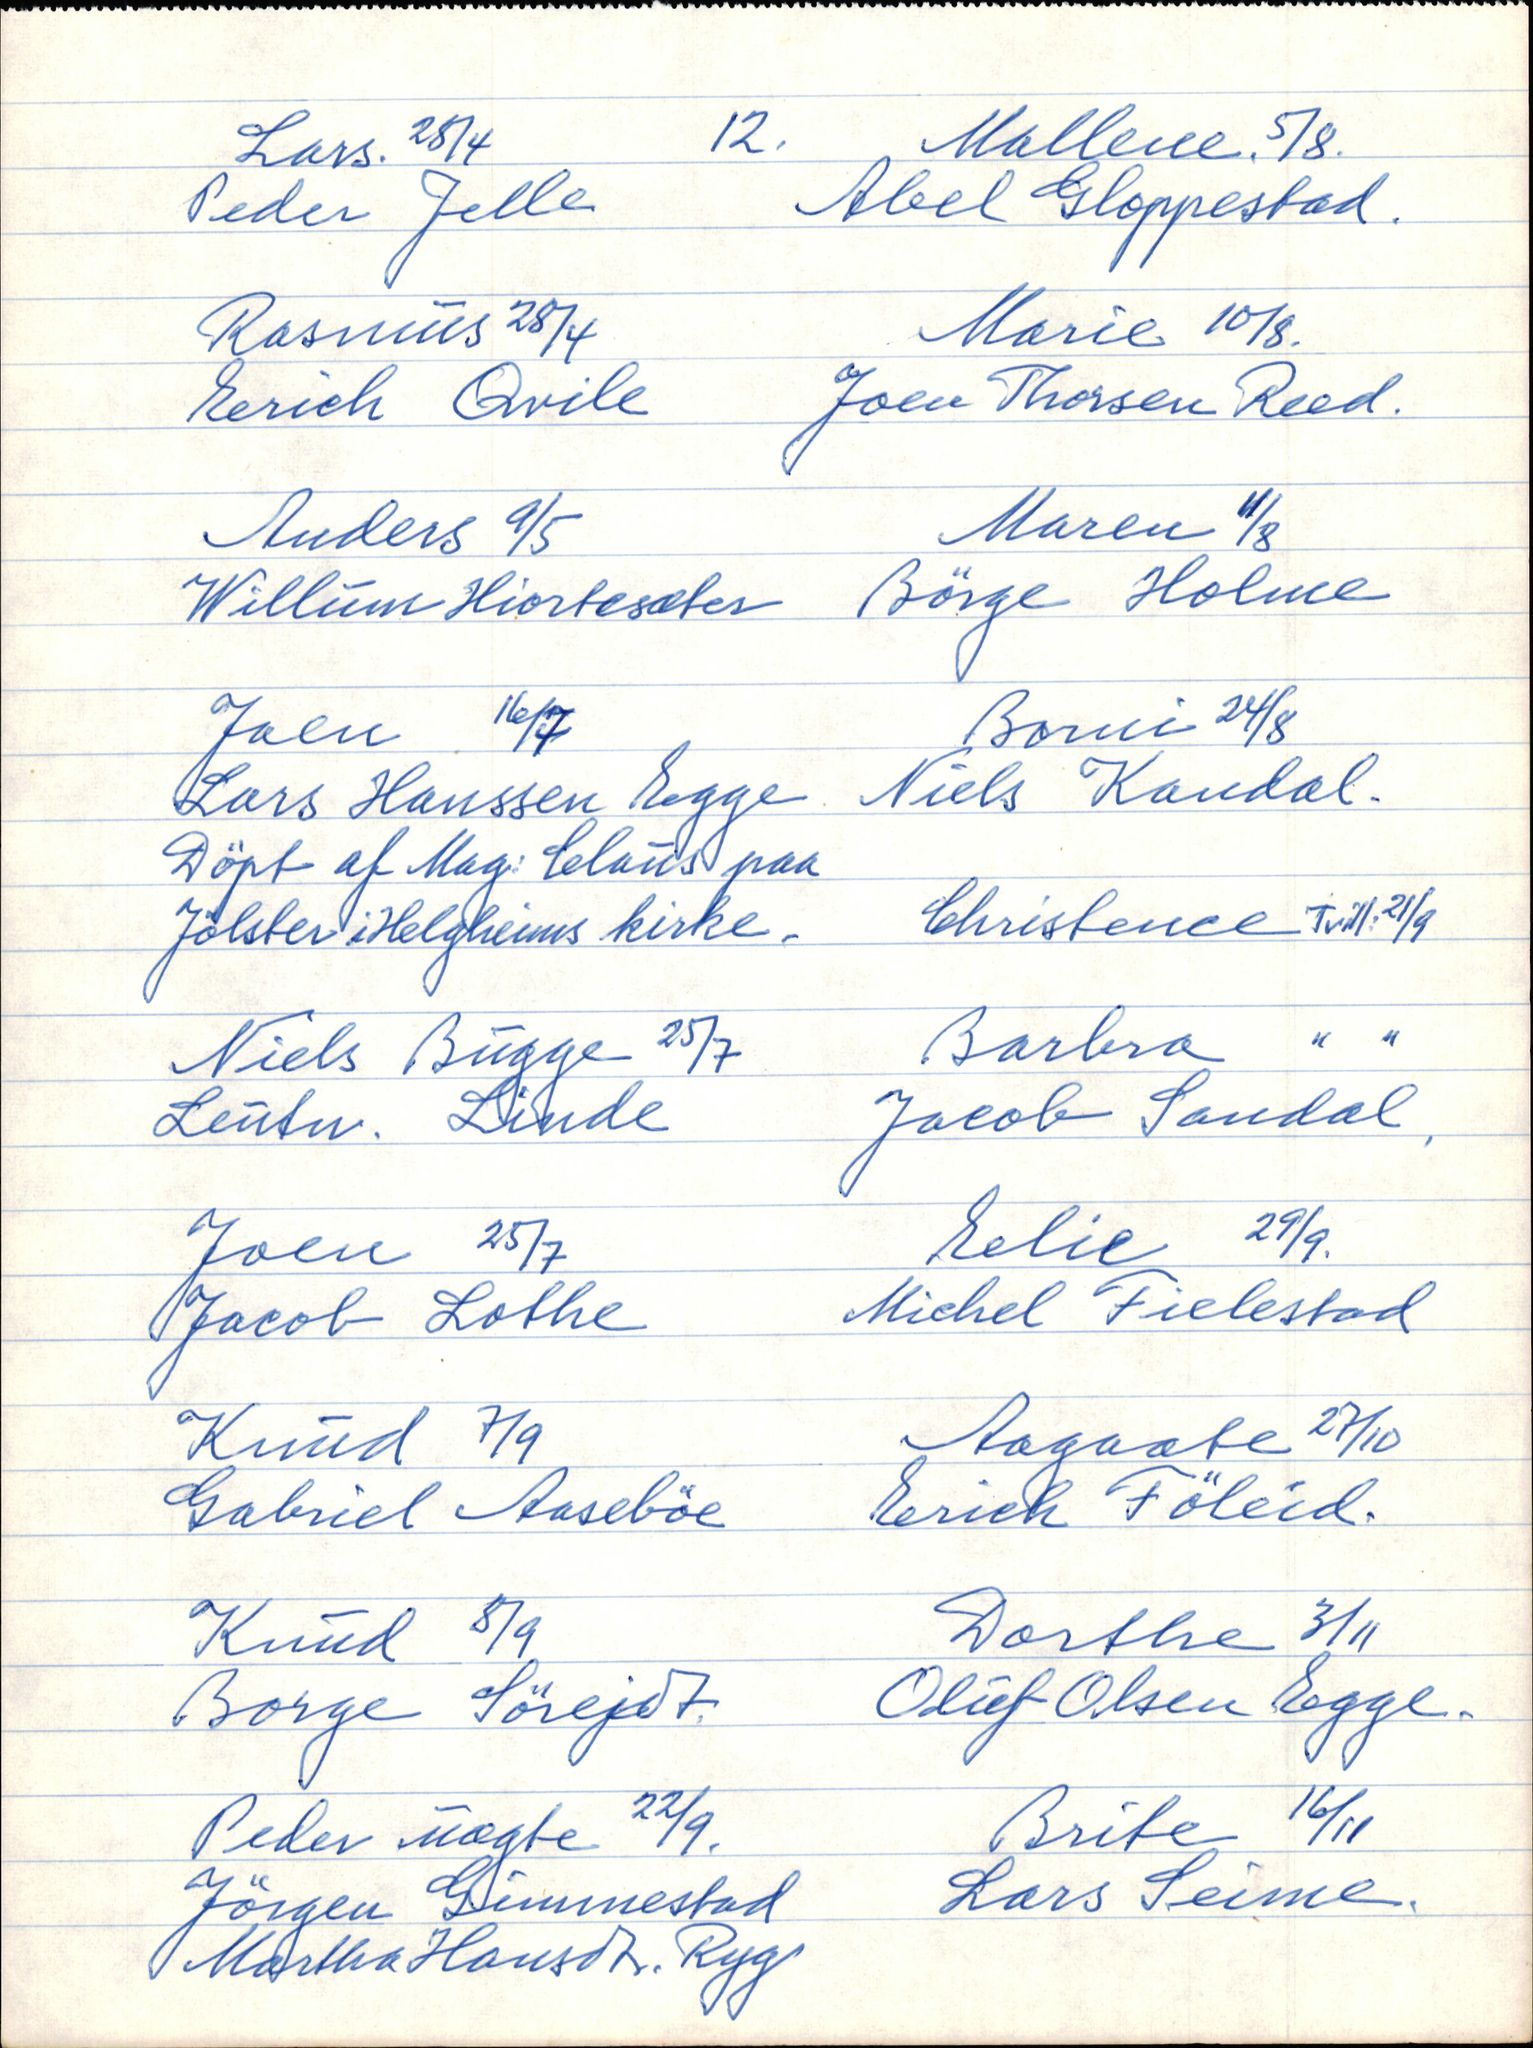 12.
Lars. 28/4
Peder Jelle
Rasmus 28/4
Erich Qvile
Anders 9/5
Willum Hiortesæter
Joen 16/7
Lars Hanssen Egge
Döpt af Mag: Claus paa
Jölster i Helgheims kirke.
Niels Bugge 25/7
Leutn. Linde
Joen 25/7
Jacob Lothe
Knud 7/9
Gabriel Aaseböe
Knud 8/9
Borge
Peder uægte 22/9.
Jörgen Gimmestad
Martha Hansdt. Ryg
Mallene. 5/8.
Abel Gloppestad.
Marie 10/8.
Joen Thorsen Reed.
Maren 11/8
Börge Holme
Borni 24/8
Niels Kandal.
Christence Tvill: 21/9
Barbra " "
Jacob Sandal,
Elie 29/9.
Michel Fielestad
Aagaate 27/10
Erich Föleid.
Dorthe 3/11
Oluf Olsen Egge.
Brite 16/11
Lars Seime.